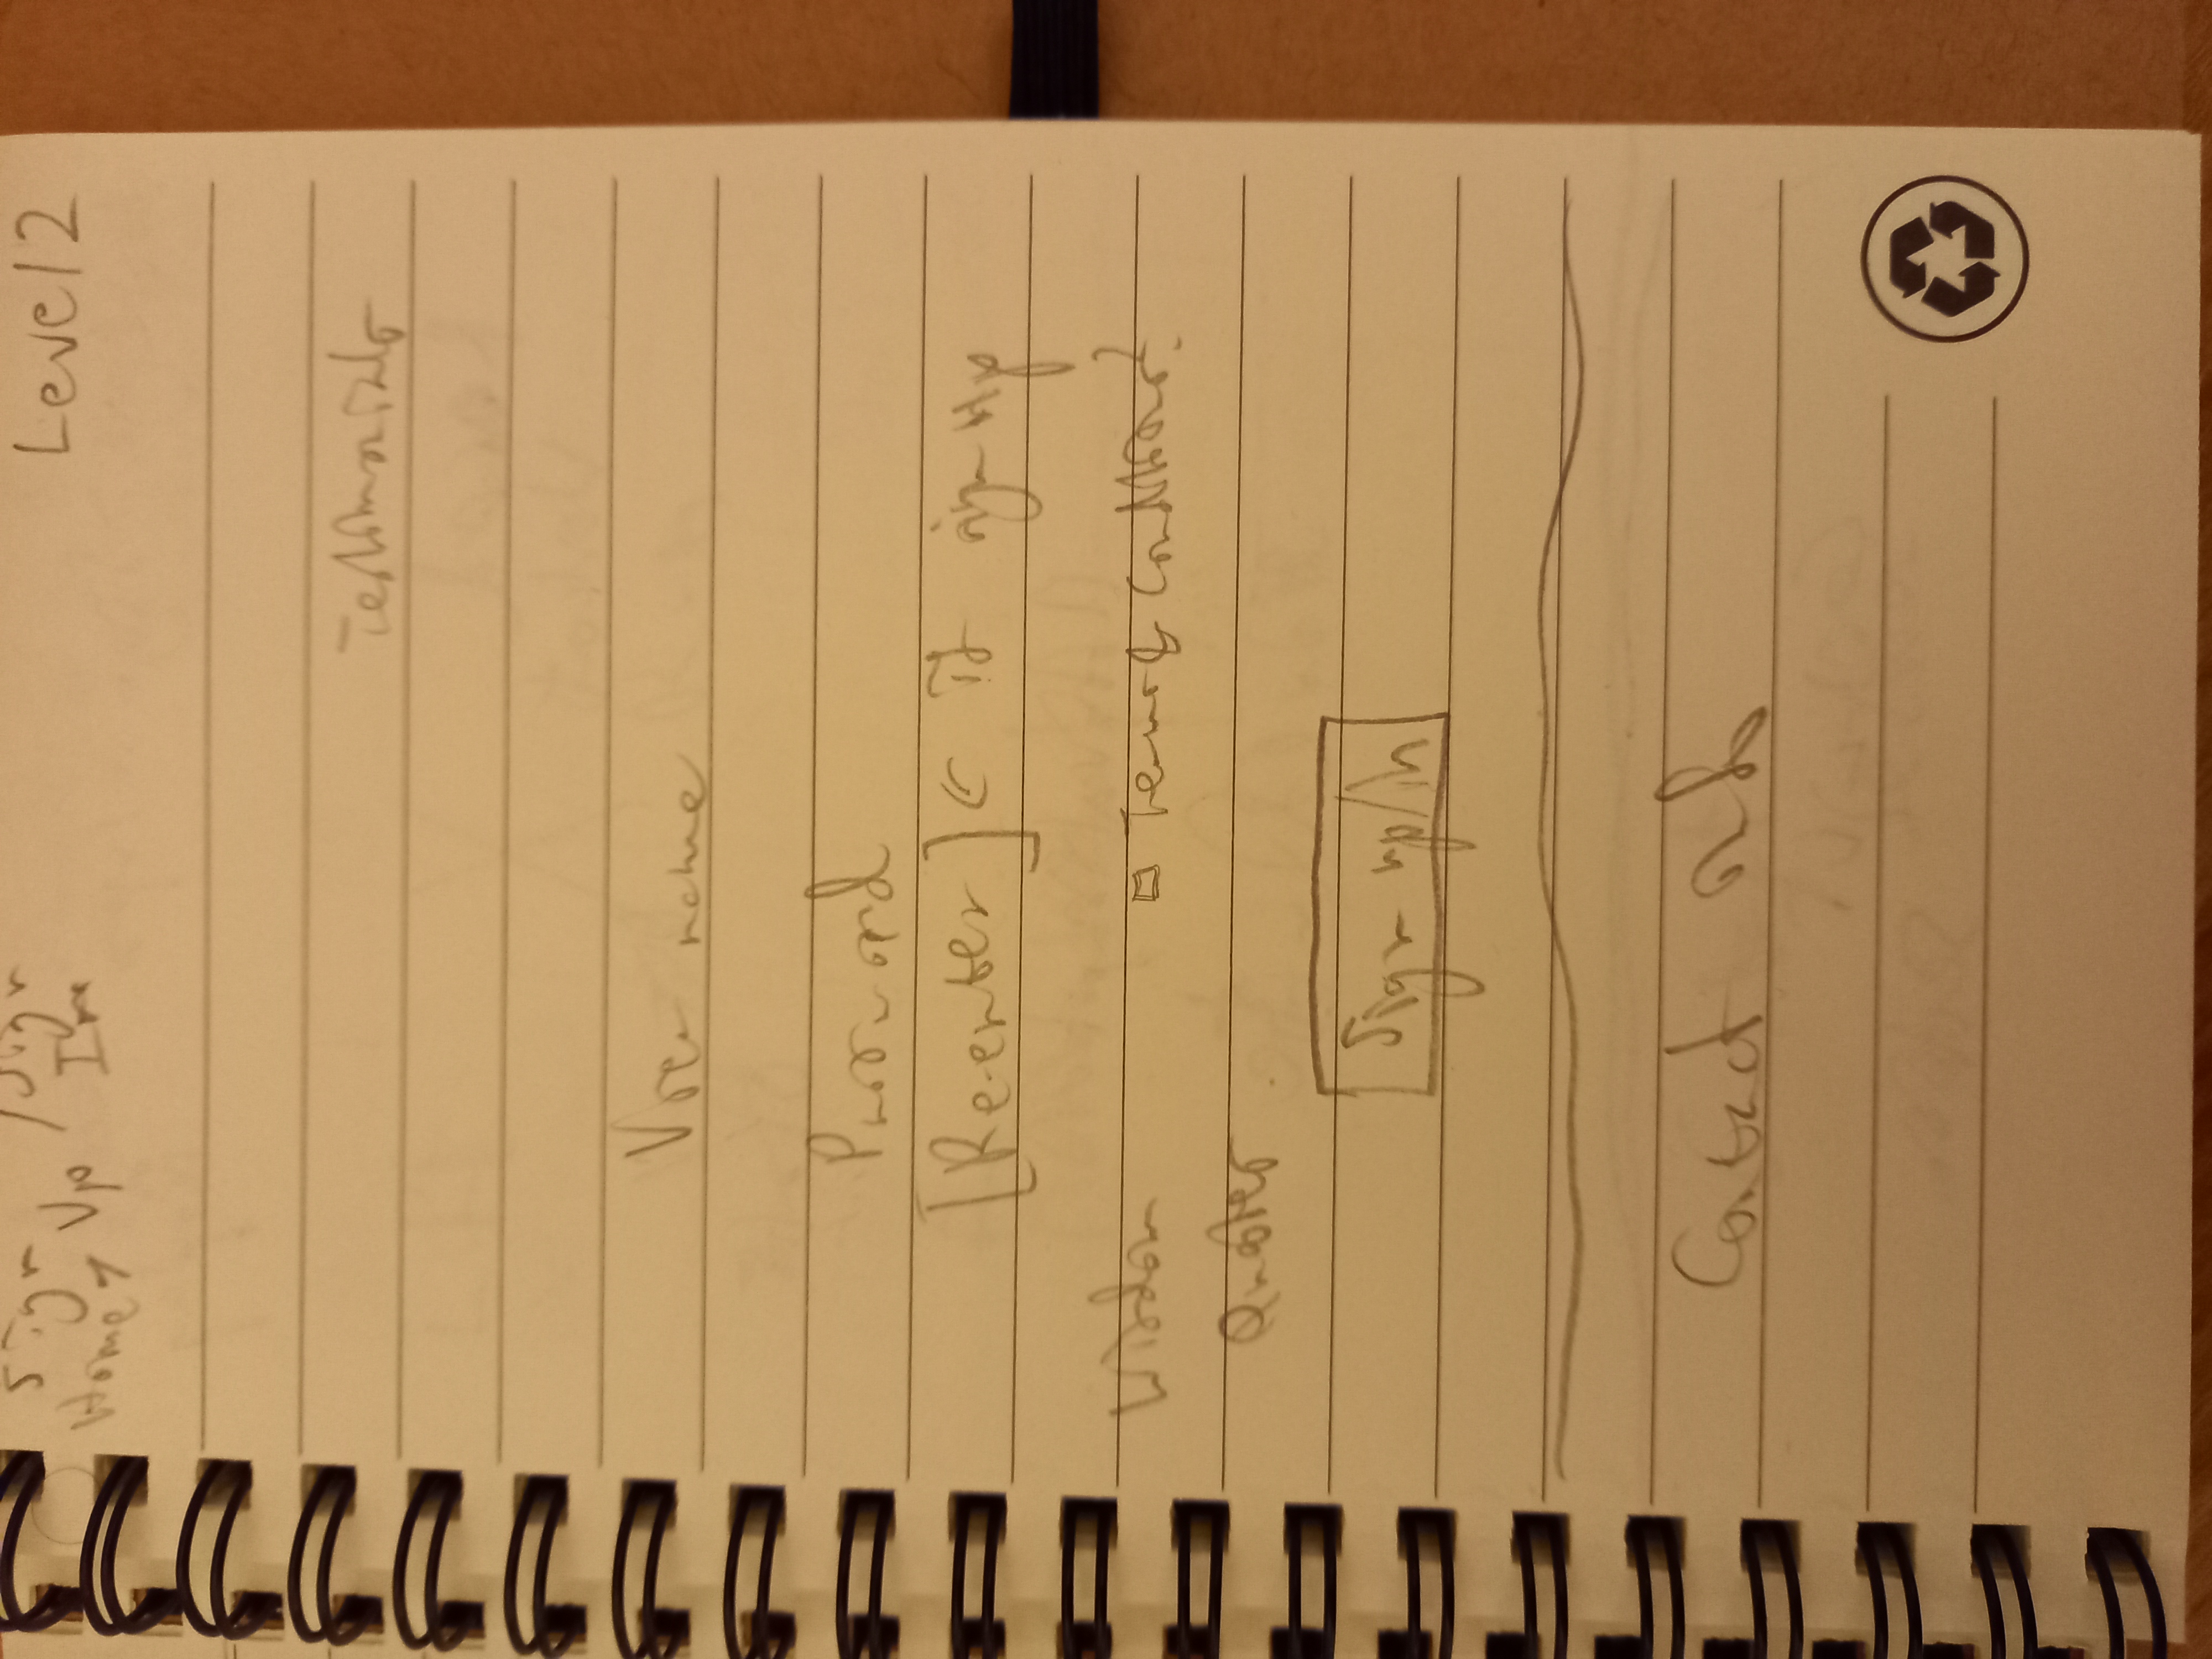 Sign / Sign
Home → Up In
Level 2
Testimonials
User name
Password
[Re-enter] ← If sign up
Wisdom
□ Terms & Conditions?
Quotes
Sign up/in
Contact info